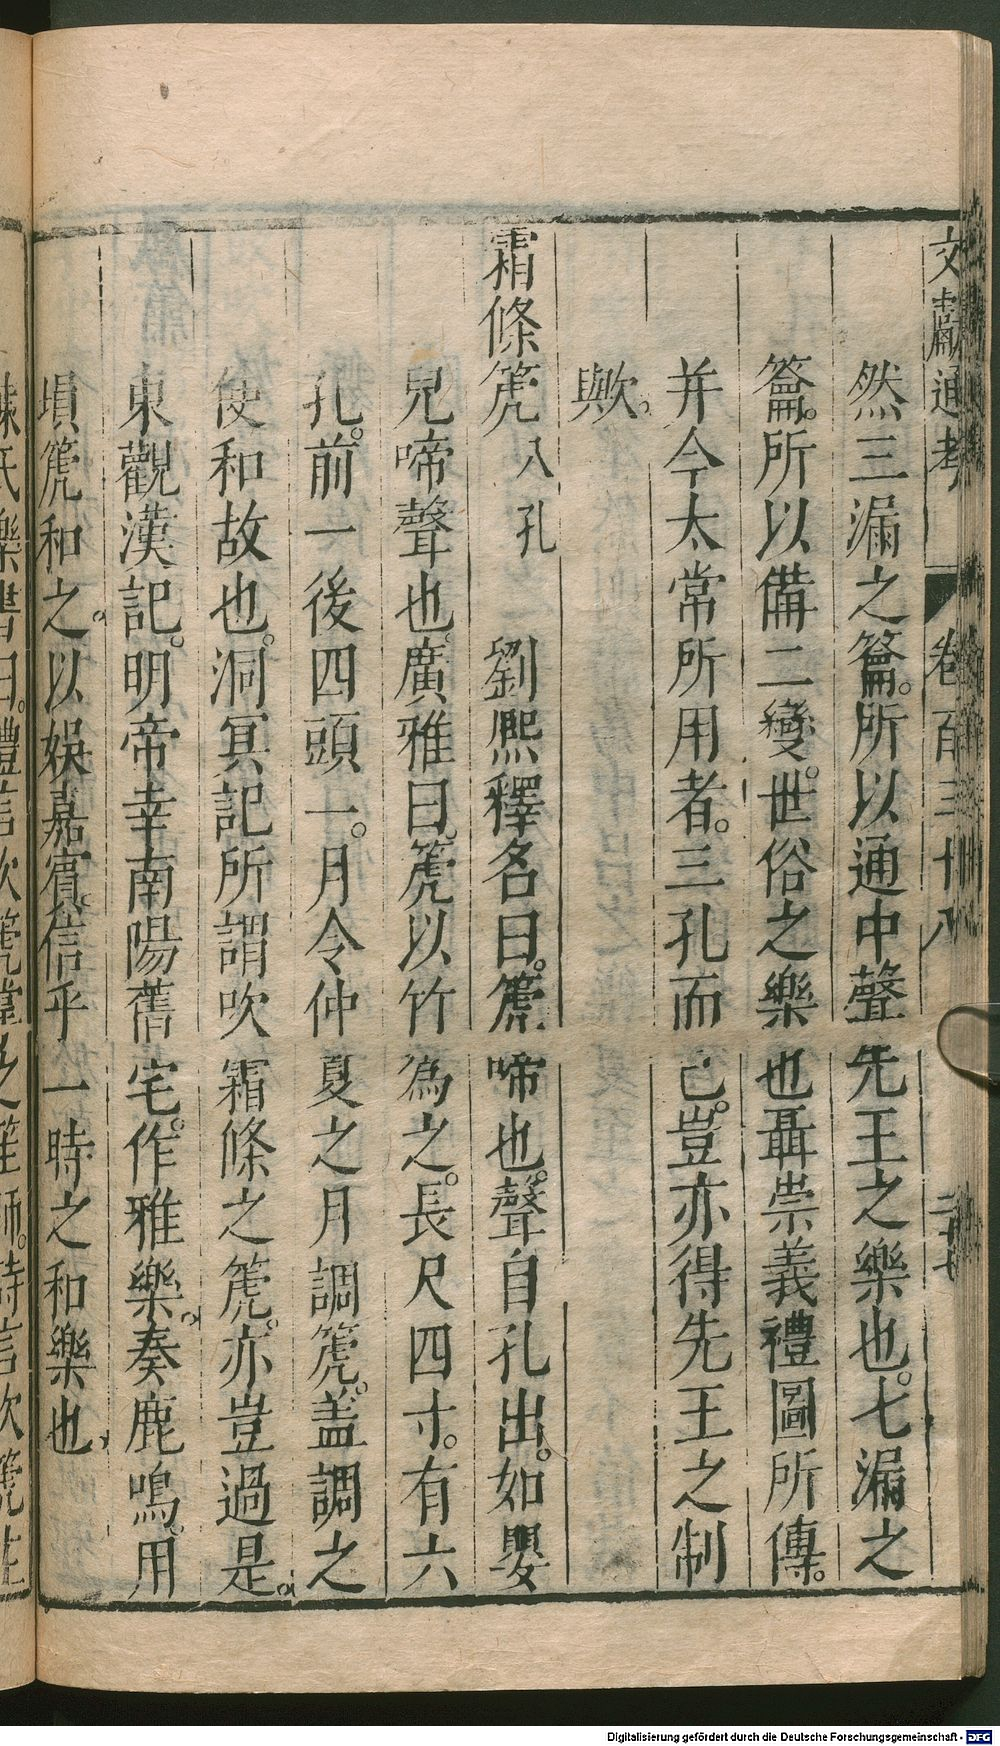 文獻通考 卷百三十八 二十七
然三漏之籥。所以通中聲先王之樂也。七漏之
籥。所以備二變。世俗之樂也聶崇義禮圖所傳。
并今太常所用者。三孔而已。豈亦得先王之制
歟。
霜條篪 八孔 劉熙釋名曰。篪啼也。聲自孔出。如嬰
兒啼聲也。廣雅曰。篪以竹為之。長尺四寸。有六
孔。前一後四頭一。月令仲夏之月調篪。蓋調之
使和故也。洞冥記所謂吹霜條之篪。亦豈過是。
東觀漢記。明帝幸南陽舊宅。作雅樂。奏鹿鳴。用
塤篪和之。以娛嘉賓。信乎一時之和樂也
陳氏樂書曰。禮言吹篪掌之笙師。詩言吹篪主
Digitalisierung gefördert durch die Deutsche Forschungsgemeinschaft - DFG